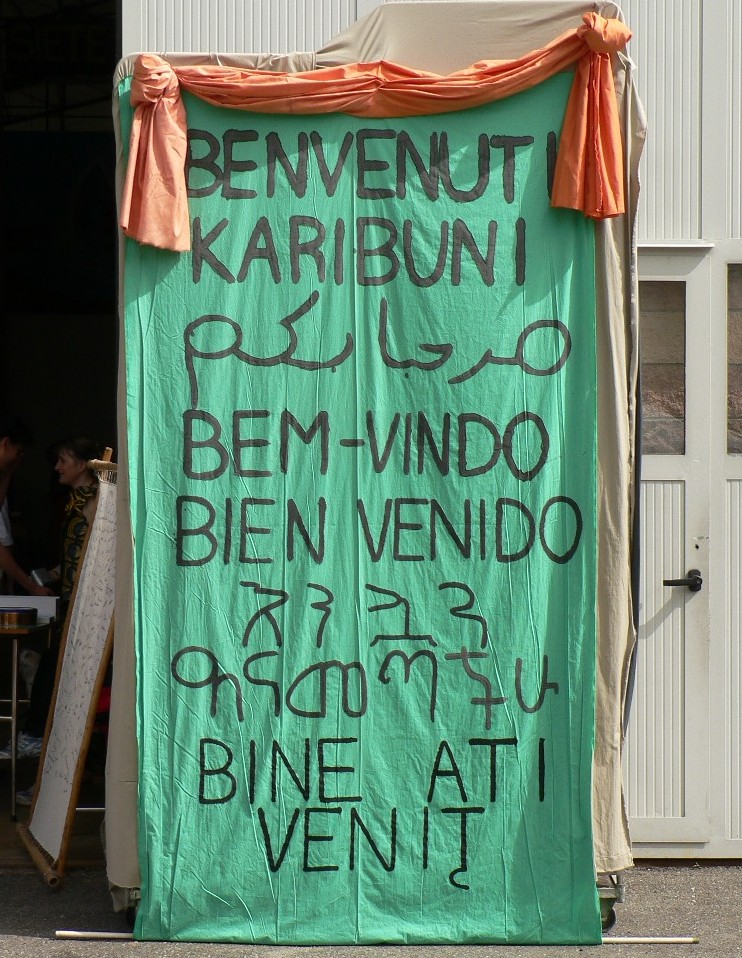 BENVENUTI
KARIBUNI
مرحبا بكم
BEM-VINDO
BIEN VENIDO
እንኳን
መጣችሁ
BINE ATI
VENIŢ